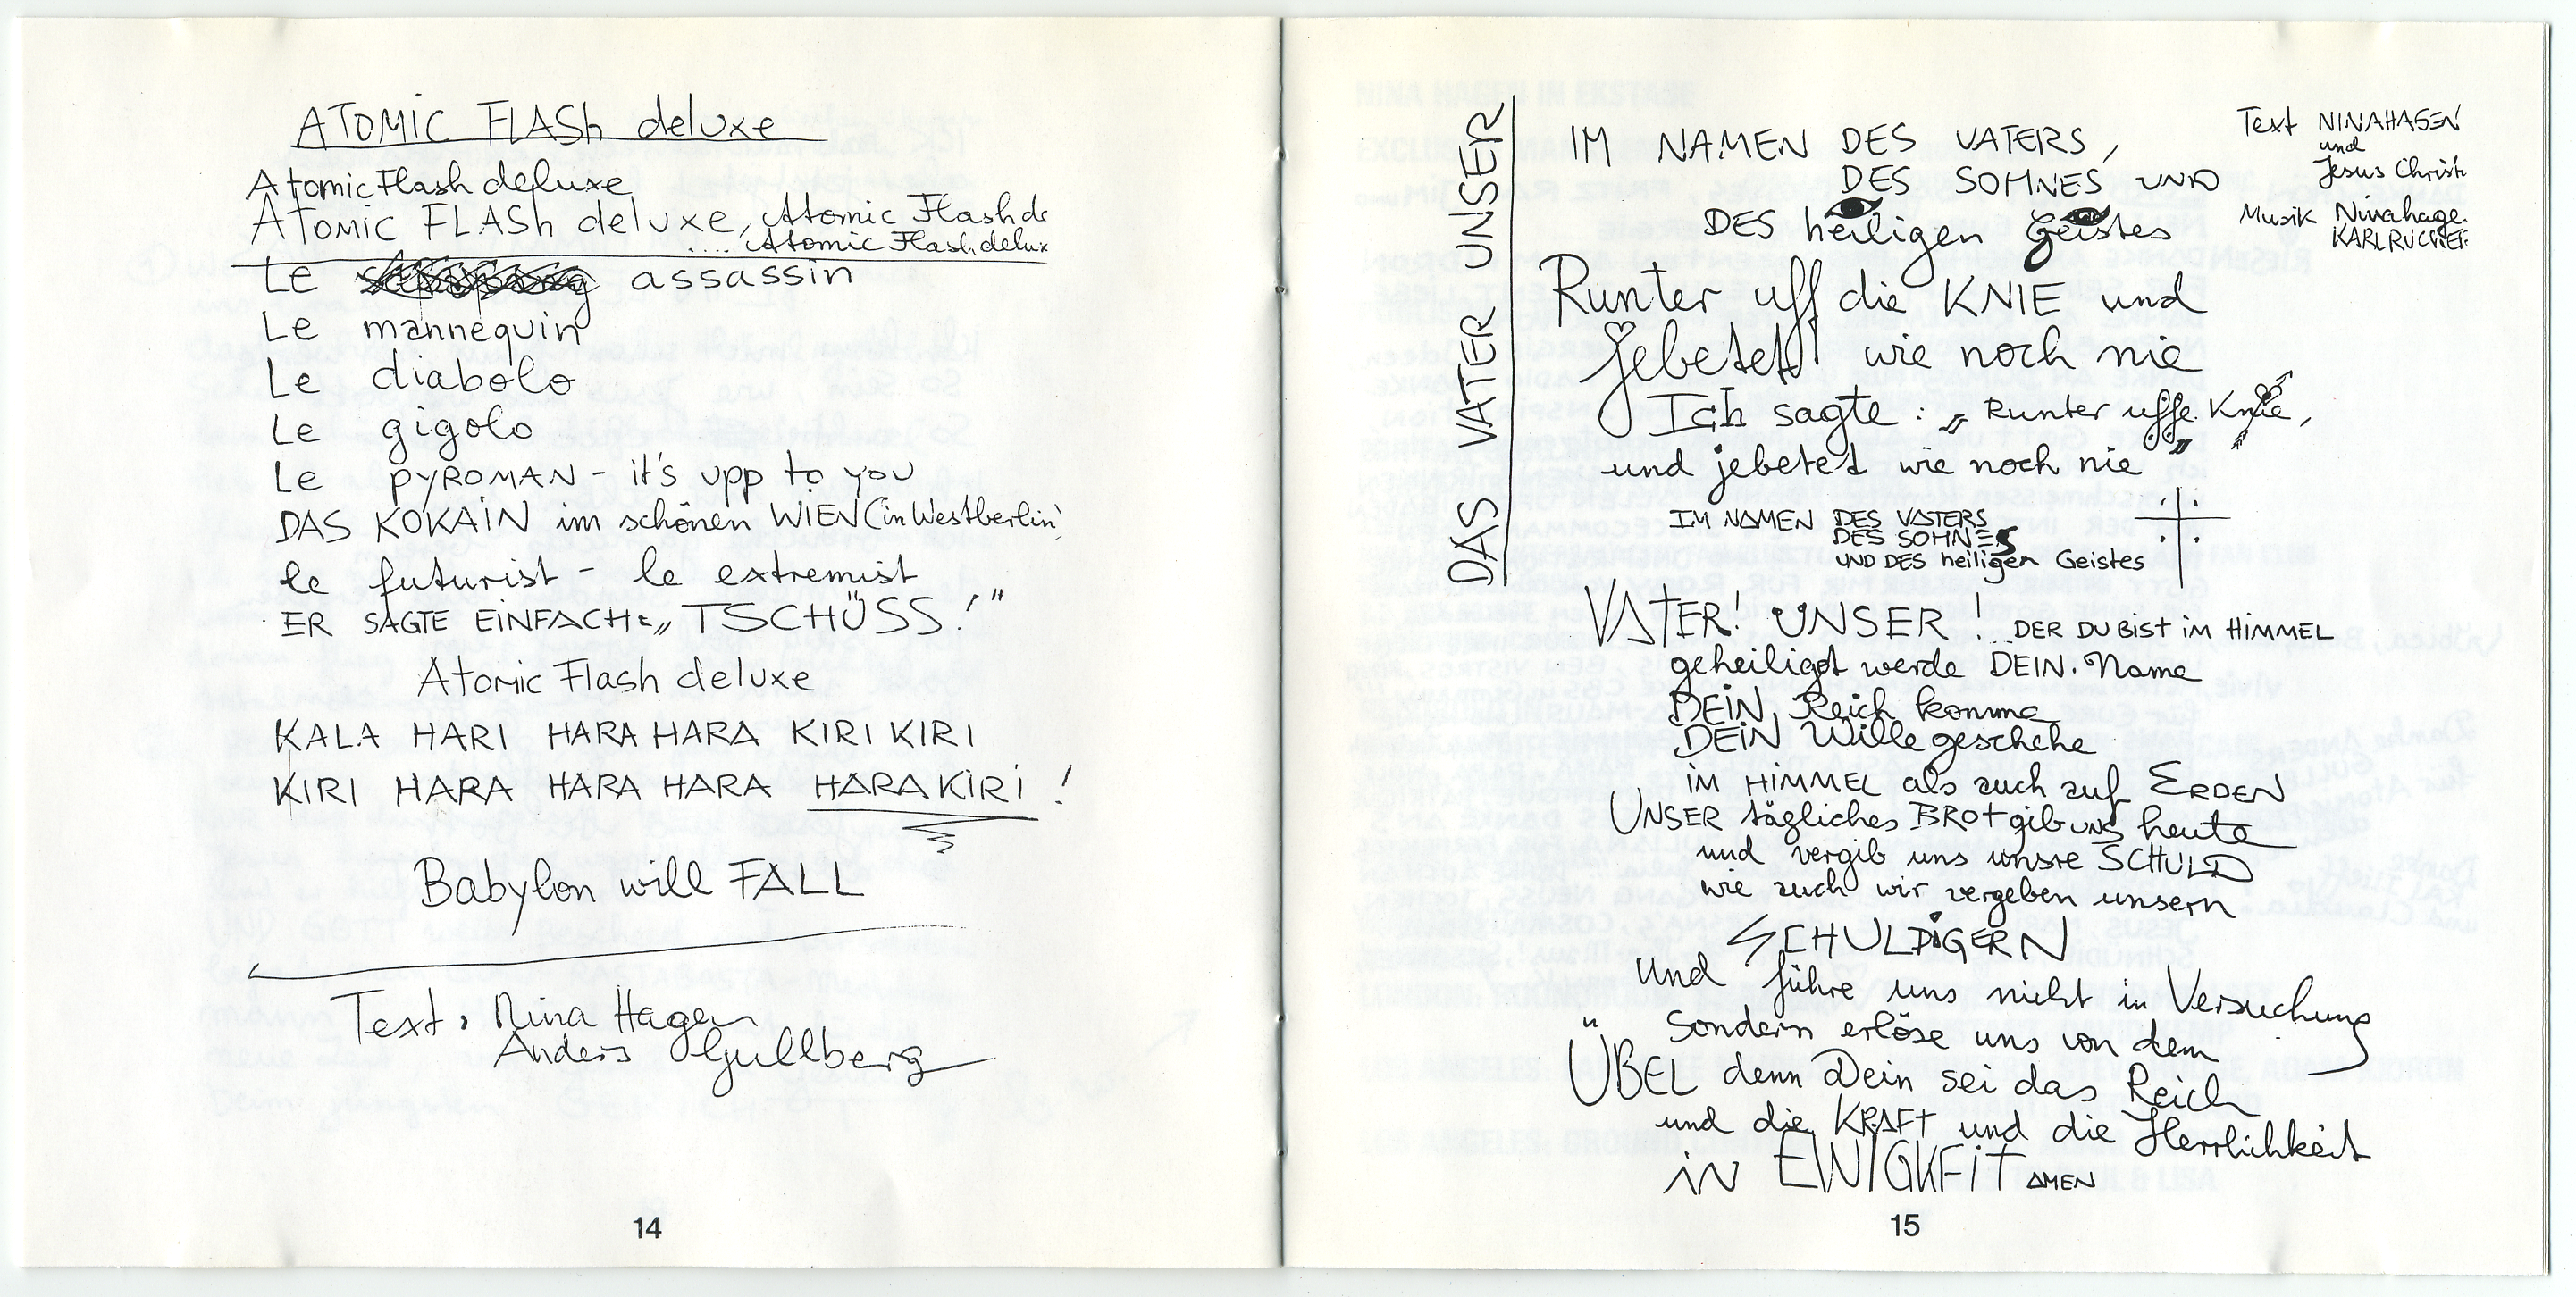 ATOMIC FLASh deluxe
Atomic Flash deluxe
ATOMIC FLASh deluxe, Atomic Flash de
.... Atomic Flash delux
Le assassin
Le mannequin
Le diabolo
Le gigolo
Le PYROMAN - it's upp to you
DAS KOKAIN im schönen WIEN (in Westberlin)
le futurist - le extremist
ER SAGTE EINFACH: „TSCHÜSS!"
Atomic Flash deluxe
KALA HARI HARA HARA KIRI KIRI
KIRI HARA HARA HARA HARAKIRI !
Babylon will FALL
Text: Nina Hagen
Anders Gullberg
14
DAS VATER UNSER
Text NINAHAGEN
und
Jesus Christ
Musik Ninahage
KARL RUCKER
IM NAMEN DES VATERS,
DES SOHNES UND
DES heiligen Geistes
Runter uff die KNIE und
jebetet! wie noch nie
Ich sagte: „Runter uffe Knie,
und jebetet wie noch nie"
IM NAMEN DES VATERS
DES SOHNES
UND DES heiligen Geistes
VATER! UNSER! DER DU BIST IM HIMMEL
geheiligt werde DEIN Name
DEIN Reich komme
DEIN Wille geschehe
IM HIMMEL als auch auf ERDEN
UNSER tägliches BROT gib UNS heute
und vergib uns unsre SCHULD
wie auch wir vergeben unsern
SCHULDIGERN
und führe uns nicht in Versuchung
Sondern erlöse uns von dem
ÜBEL denn Dein sei das Reich
und die KRAFT und die Herrlichkeit
in EWIGKEIT AMEN
15